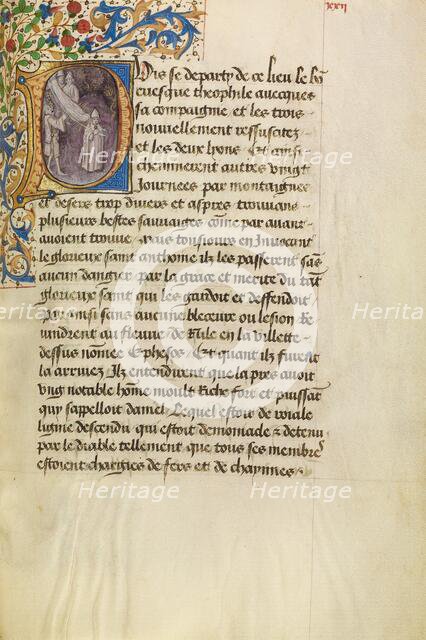 xxii
Puis se departy de ce lieu le bō
euesque theophile auecques
sa compaignie et les trois
nouuellement ressuscitez
et les deux lyons. Et ainsi
cheminerent autres vingt
journees par montaignes
et desers trop diuers et aspres trouuans
plusieurs bestes sauuaiges cōme par auant
auoient trouue. mais tousiours en Inuocant
le glorieux saint anthoine ilz les passerent sās
aucun dangier par la grace et merite du trāt
glorieux saint qui les gardoit et deffendoit
par ainsi sans aucune blecēure ou lesion
vindrent au fleuue de Nile en la villette
dessus nomee Ephesos. Et quant ilz furent
la arriuez Ilz entendirent que la pres auoit
vng notable hōme moult Riche fort et puissāt
quy sappelloit daniel. Lequel estoit de roiale
ligne descendu qui estoit demoniacle & detenu
par le diable tellement que tous ses membres
estoient chargies de fers et de chaynnes.
Heritage Heritage Heritage
Heritage Heritage Heritage
Heritage Heritage